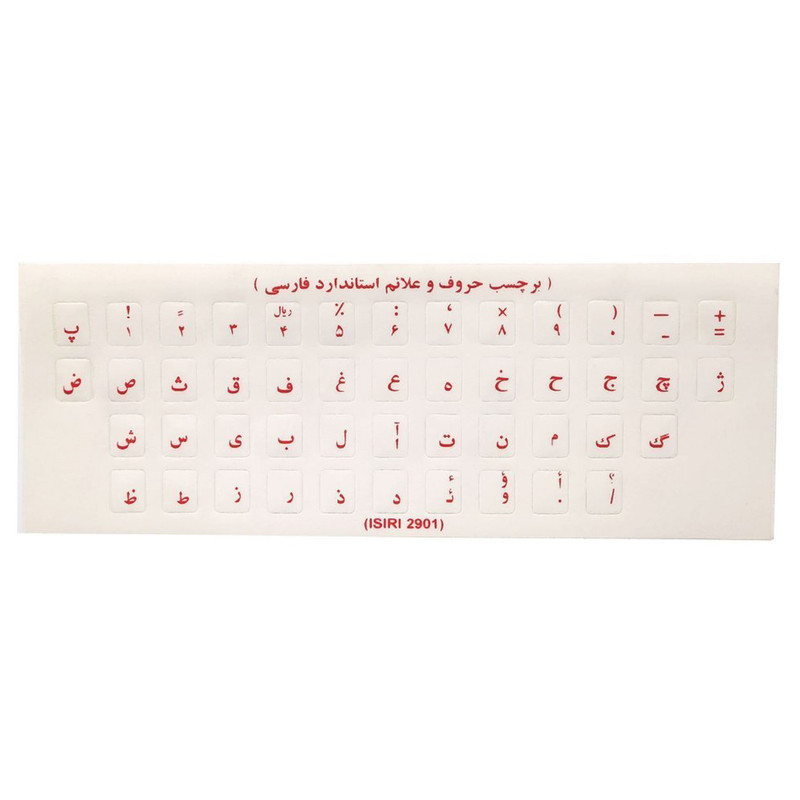 ( برچسب حروف و علائم استاندارد فارسی )
پ ! ۱ ً ۲ ۳ ریال ۴ ٪ ۵ : ۶ ، ۷ × ۸ ( ۹ ) ۰ — - + =
ض ص ث ق ف غ ع ه خ ح ج چ ژ
ش س ی ب ل آ ا ت ن م ک گ
ظ ط ز ر ذ د ء ئ ؤ و أ . ؟ /
(ISIRI 2901)